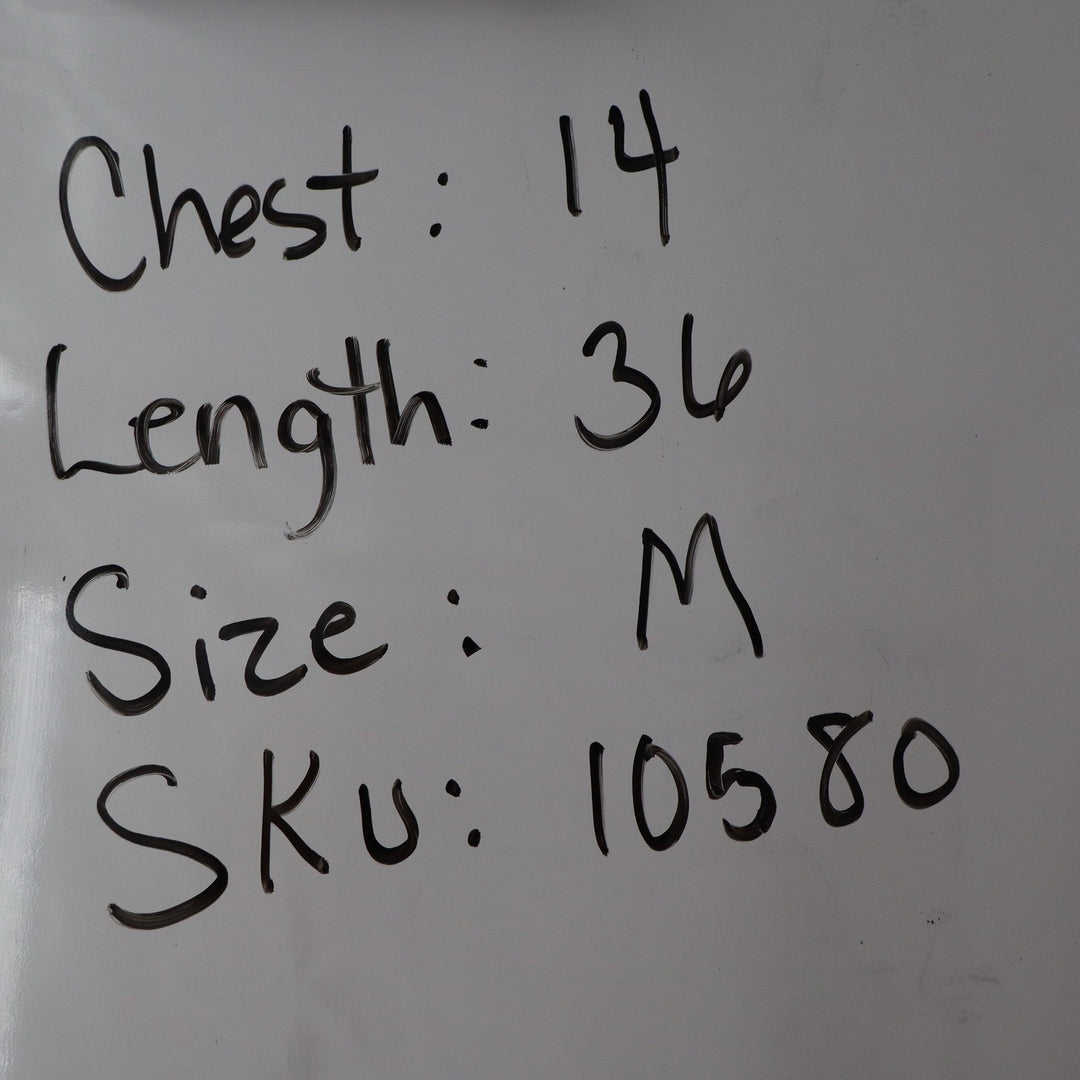 Chest: 14
Length: 36
Size: M
SKU: 10580